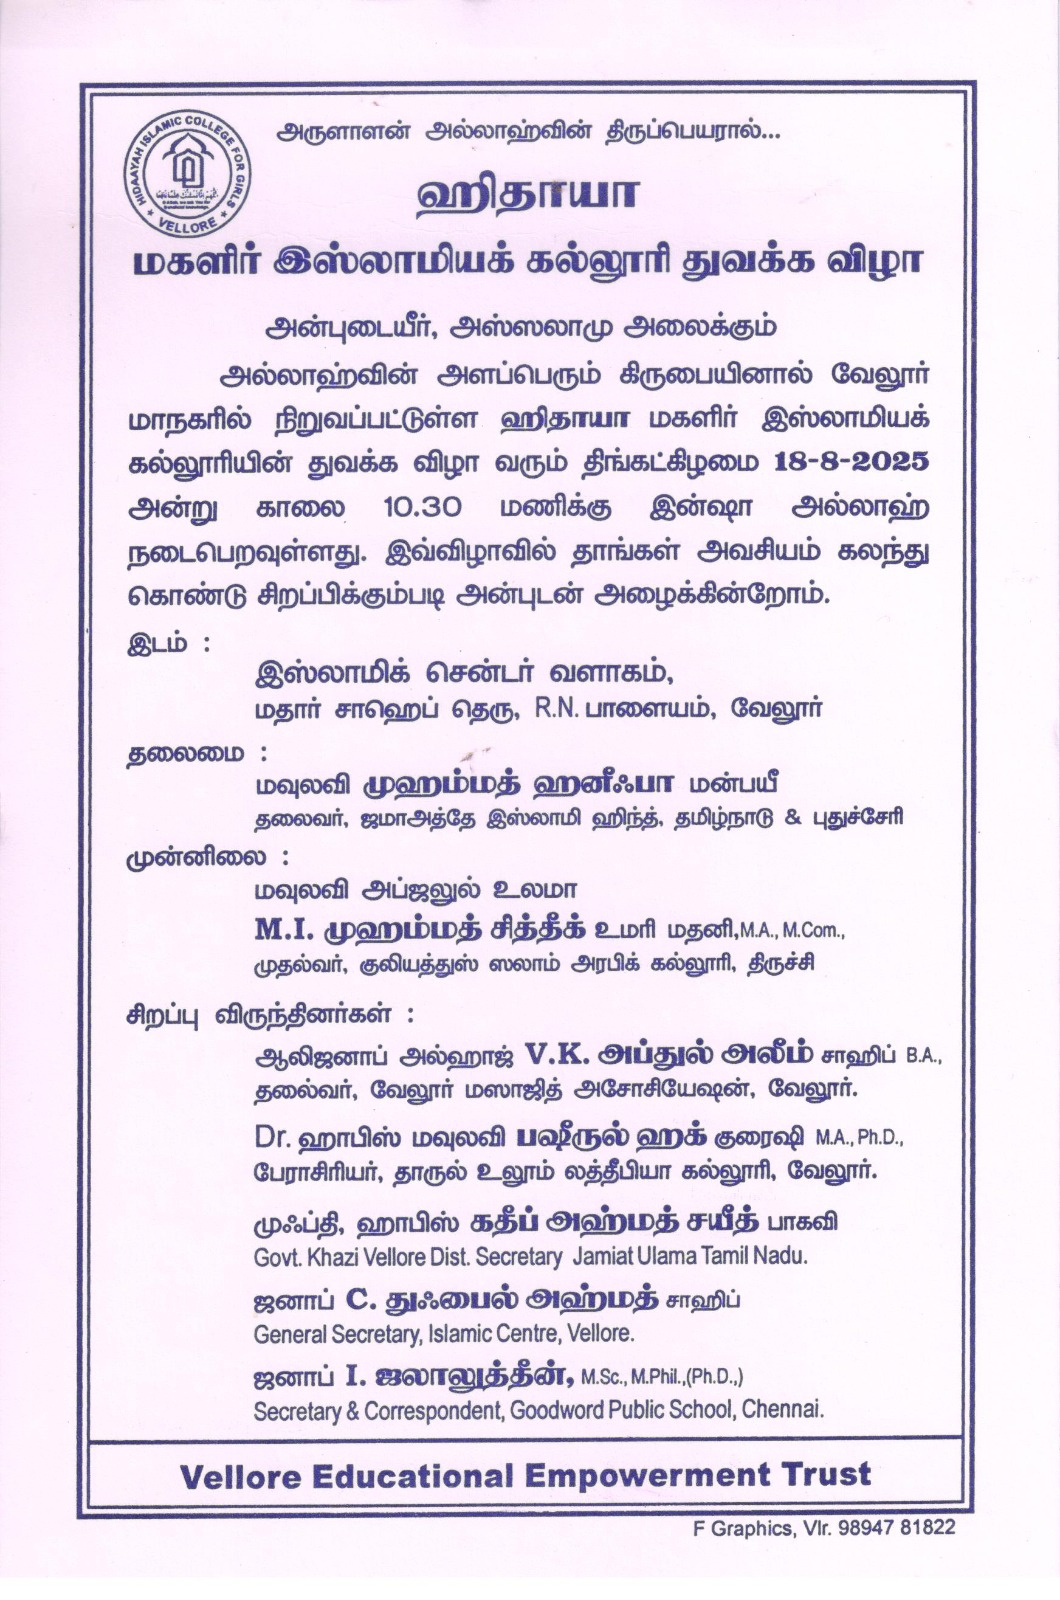 HIDAAYAH ISLAMIC COLLEGE FOR GIRLS
★ VELLORE ★
அருளாளன் அல்லாஹ்வின் திருப்பெயரால்...
ஹிதாயா
மகளிர் இஸ்லாமியக் கல்லூரி துவக்க விழா
அன்புடையீர், அஸ்ஸலாமு அலைக்கும்
அல்லாஹ்வின் அளப்பெரும் கிருபையினால் வேலூர்
மாநகரில் நிறுவப்பட்டுள்ள ஹிதாயா மகளிர் இஸ்லாமியக்
கல்லூரியின் துவக்க விழா வரும் திங்கட்கிழமை 18-8-2025
அன்று காலை 10.30 மணிக்கு இன்ஷா அல்லாஹ்
நடைபெறவுள்ளது. இவ்விழாவில் தாங்கள் அவசியம் கலந்து
கொண்டு சிறப்பிக்கும்படி அன்புடன் அழைக்கின்றோம்.
இடம் :
இஸ்லாமிக் சென்டர் வளாகம்,
மதார் சாஹெப் தெரு, R.N. பாளையம், வேலூர்
தலைமை :
மவுலவி முஹம்மத் ஹனீஃபா மன்பயீ
தலைவர், ஜமாஅத்தே இஸ்லாமி ஹிந்த், தமிழ்நாடு & புதுச்சேரி
முன்னிலை :
மவுலவி அப்ஜலுல் உலமா
M.I. முஹம்மத் சித்தீக் உமரி மதனி,M.A., M.Com.,
முதல்வர், குலியத்துஸ் ஸலாம் அரபிக் கல்லூரி, திருச்சி
சிறப்பு விருந்தினர்கள் :
ஆலிஜனாப் அல்ஹாஜ் V.K. அப்துல் அலீம் சாஹிப் B.A.,
தலைவர், வேலூர் மஸாஜித் அசோசியேஷன், வேலூர்.
Dr. ஹாபிஸ் மவுலவி பஷீருல் ஹக் குரைஷி M.A., Ph.D.,
பேராசிரியர், தாருல் உலூம் லத்தீபியா கல்லூரி, வேலூர்.
முஃப்தி, ஹாபிஸ் கதீப் அஹ்மத் சயீத் பாகவி
Govt. Khazi Vellore Dist. Secretary Jamiat Ulama Tamil Nadu.
ஜனாப் C. துஃபைல் அஹ்மத் சாஹிப்
General Secretary, Islamic Centre, Vellore.
ஜனாப் I. ஜலாலுத்தீன், M.Sc., M.Phil.,(Ph.D.,)
Secretary & Correspondent, Goodword Public School, Chennai.
Vellore Educational Empowerment Trust
F Graphics, Vlr. 98947 81822